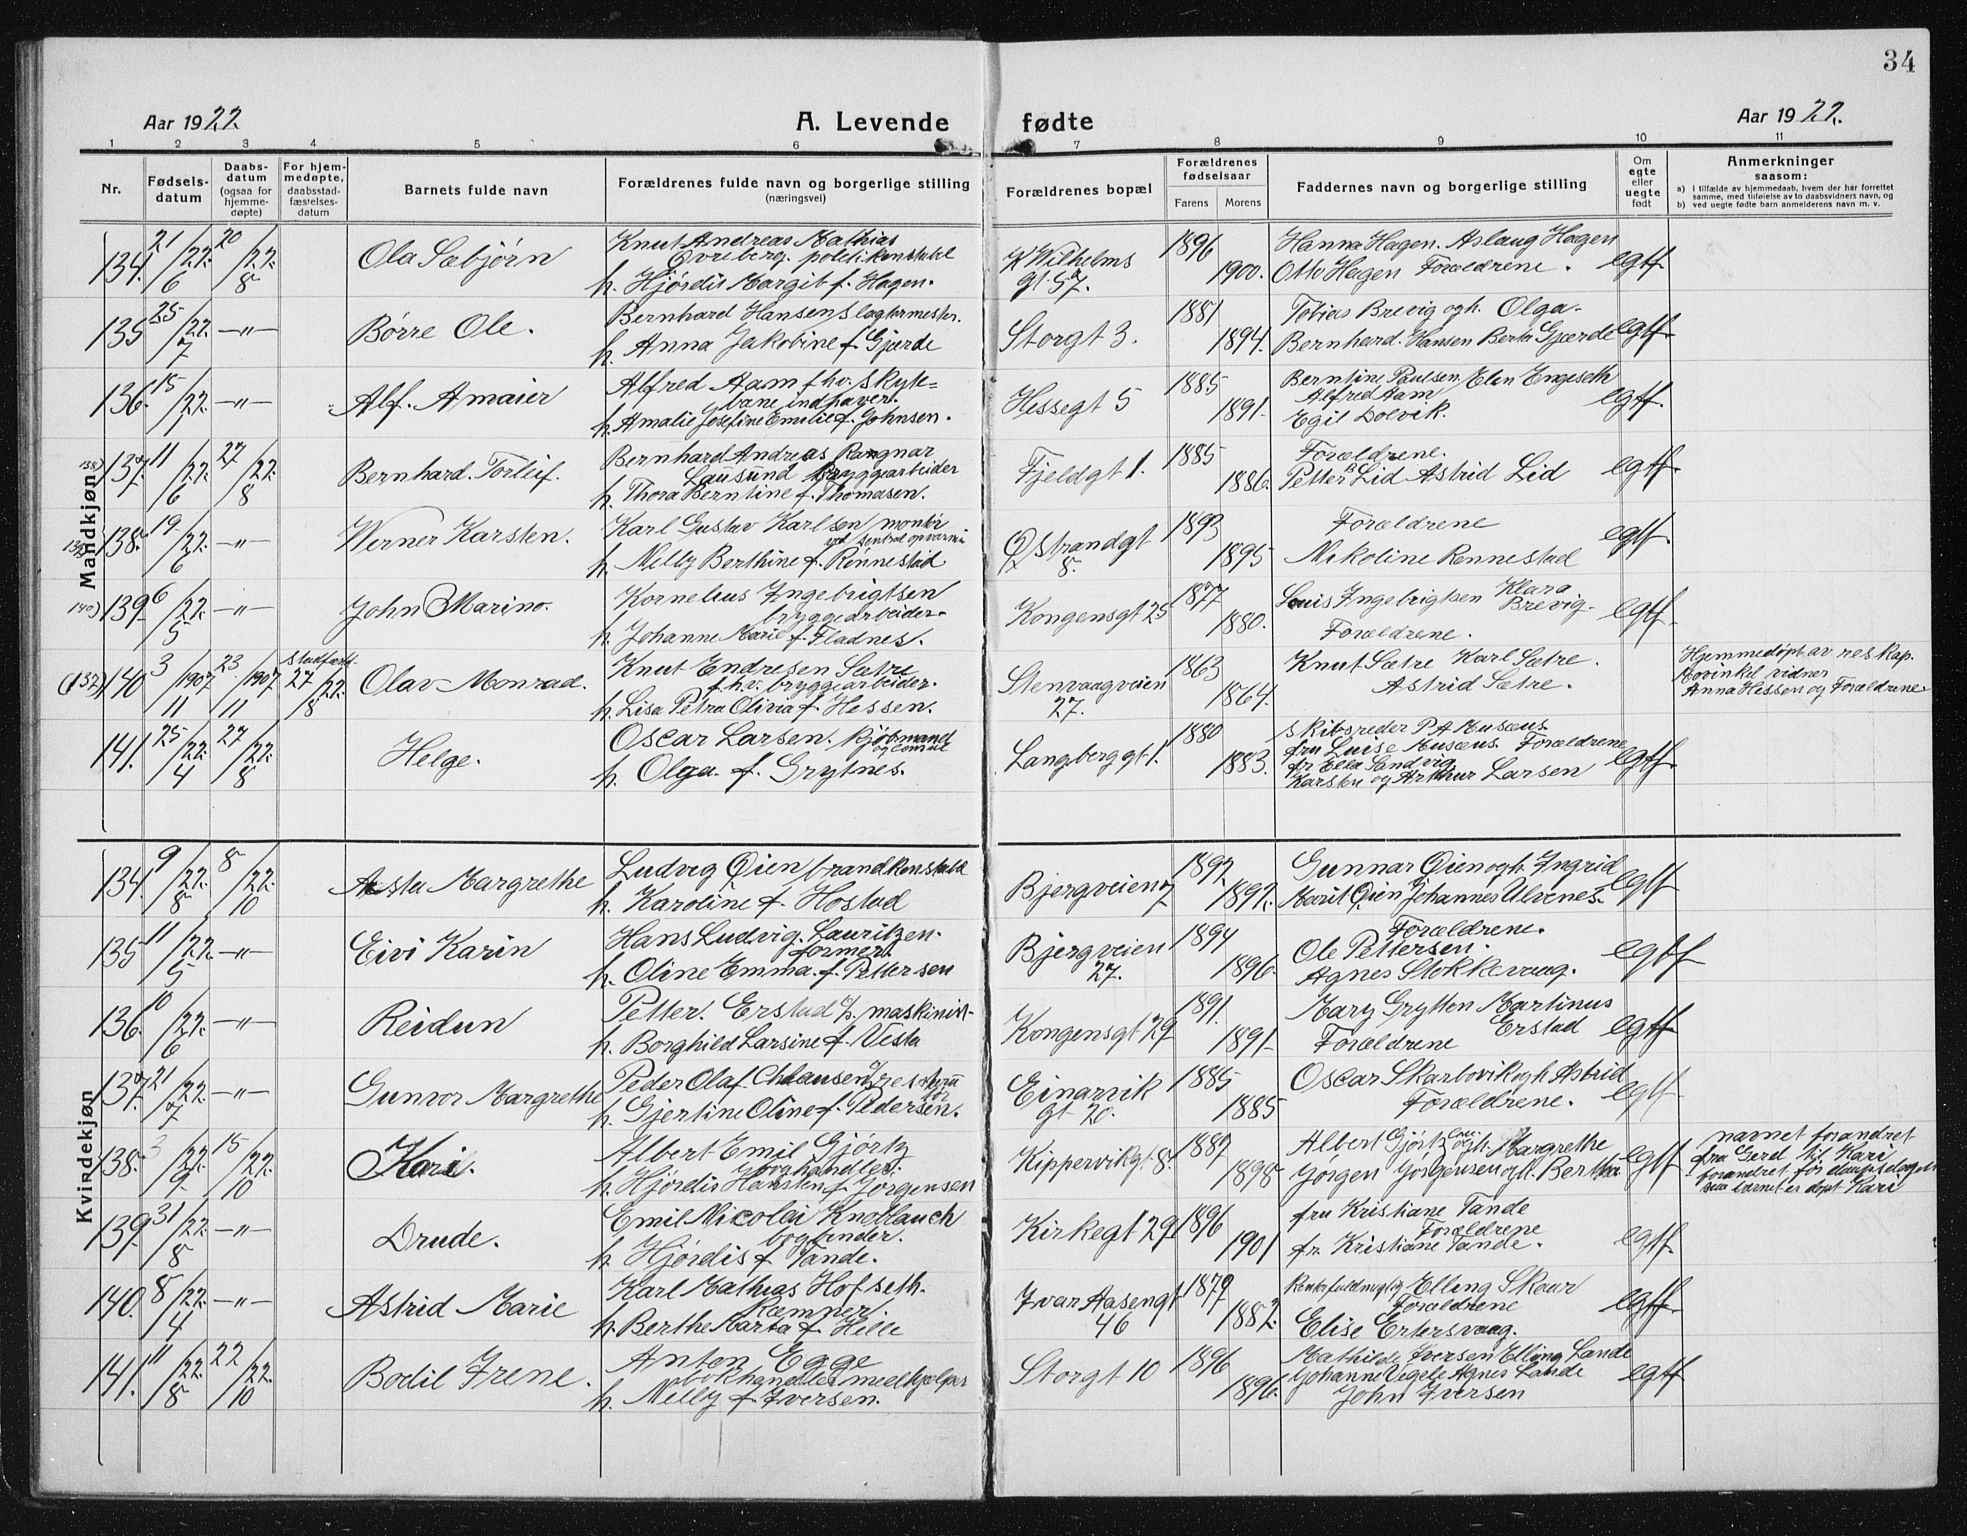 34
Aar 1922
A. Levende fødte
Aar 1922.
1 2 3 4 5 6 7 8 9 10 11
Nr.
Fødsels-
datum
Daabs-
datum
(ogsaa for
hjemme-
døpte)
For hjem-
medøpte,
daabsstad-
fæstelses-
datum
Barnets fulde navn
Forældrenes fulde navn og borgerlige stilling
(næringsvei)
Forældrenes bopæl
Forældrenes
fødselsaar
Farens Morens
Faddernes navn og borgerlige stilling
Om
egte
eller
uegte
født
Anmerkninger
saasom:
a) i tilfælde av hjemmedaab, hvem der har forrettet
samme, med tilføielse av to daabsvidners navn, og
b) ved uegte fødte barn anmelderens navn m. v.
Mandkjøn
134. 21/6 22. 20/8 22. Ola Sæbjørn
Knut Andreas Mathias
Overberg. politikonstabel
h. Hjørdis Margit f. Hagen.
K Wilhelms
gt. 57.
1896
1900.
Hanna Hagen. Aslaug Hagen
Otto Hagen Forældrene.
egtf.
135 25/7 22. —"— Børre Ole.
Bernhard Hansen slagtermester.
h. Anna Jakobine f. Gjærde
Storgt 3.
1881
1894.
Tobias Brevig og h. Olga.
Bernhard. Hansen Berta Gjærde
egtf.
136. 15/1 22. —"— Alf. Amaier
Alfred Aam fhv. skyte=
baneindhaver.
h. Amalie Josefine Emilie f. Johnsen.
Hessegt 5
1885
1891.
Berntine Paulsen Elen Engeseth
Alfred Aam
Egil Dolvik.
egtf.
138) 137. 11/6 22. 27/8 22. Bernhard. Torleif.
Bernhard Andreas Ragnar
Lausund Bryggearbeider
h. Thora Berntine f. Thomasen.
Fjeldgt 1.
1885
1886.
Forældrene.
Petter Lid Astrid Lid
egtf.
138. 19/6 22. —"— Werner Karsten.
Karl Gustav Karlsen montør
h. Melly Berthine f. Rønnestad
Østrandgt
8.
1893
1895
Forældrene
Nikoline Rennestad
egtf.
140) 139. 6/5 22. —"— John Marino.
Kornelius Ingebrigtsen
bryggearbeider.
h. Johanne Marie f. Fladnes.
Kongensgt 25
1877
1880.
Louis Ingebrigtsen Klara
Brevig.
Forældrene.
egtf.
(137) 140 3/11 1907 23/11 1907 stadfæst. 27/8 22. Olav Monrad.
Knut Endresen Sætre
f.h.v. bryggearbeider.
h. Lisa Petra Olivia f. Hessen.
Stenvaagveien
27.
1863
1864.
Knut Sætre Karl Sætre.
Astrid Sætre.
Hjemmedøpt av res kap.
Hovinkel vidner
Anna Hessen og Forældrene
141. 25/4 22. 27/8 22. Helge.
Oscar Larsen. Kjøbmand
og consul
h. Olga. f. Grytnes.
Langberggt 1.
1880
1883.
Skibsreder P A Musæus.
fru Luise Musæus. Forældrene
fr Ella Sandvig
Karsten og Arthur Larsen
egtf.
Kvindekjøn
134. 9/8 22. 8/10 22. Asta Margrethe
Ludvig Øien brandkonstabel
h. Karoline f. Hostad
Bjergveien 7
1892
1892.
Gunnar Øien og h. Ingrid
Marit Øien Johannes Ulvenes.
egtf
135 11/5 22. —"— Eivi Karin
Hans Ludvig. Lauritzen.
former.
h. Oline Emma. f. Pettersen
Bjergveien
27.
1894
1896.
Forældrene.
Ole Pettersen.
Agnes Stokkevaag.
egtf
136. 10/6 22. —"— Reidun
Petter. Erstad maskinist
h. Borghild Larsine f. Vesta
Kongensgt 29
1891.
1891
Mary Grytten Martinus
Erstad
Forældrene
egtf
137. 21/7 22. —"— Gunvor Margrethe
Peder Olaf Chlausen
h. Gjertine Oline f. Pedersen.
Einarvik
gt 20
1885
1885
Oscar Skarbovik og h. Astrid
Forældrene.
egtf
138. 3/9 22. 15/10 22. Kari.
Albert Emil Gjørtz
boghandler.
h. Hjørdis Hansten f. Jørgensen
Kippervikgt 8.
1887
1898
Albert Gjørtz og h. Margrethe
Jørgen Jørgensen og h. Bertha
egtf
navnet forandret
fra Gerd til Kari
139. 31/8 22. —"— Drude.
Emil Nicolai Knoblauch
bogbinder.
h. Hjørdis f. Tande.
Kirkegt 29
1896
1901
fru Kristiane Tande
Forældrene
fr. Kristiane Tande.
egtf.
140. 8/4 22. —"— Astrid Marie
Karl Mathias Hofseth.
Kæmner.
h. Berthe Marta f. Hille
Ivar Aasengt
46
1879
1882.
Elling Skaur
Forældrene
Elise Ertersvaag.
egtf.
141. 11/8 22. 22/10 22. Bodil Irene.
Anton Egge
bokhandler medhjelper
h. Melly f. Iversen.
Storgt 10
1896
1896.
Mathilde Iversen Elling Lande
Johanne Vegele Agnes Lande
John Iversen
egtf